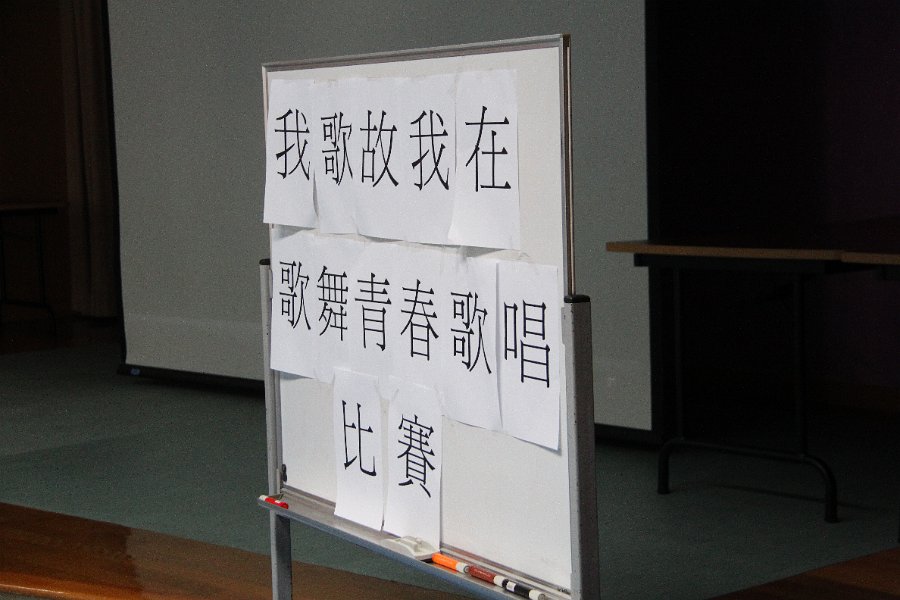 我歌故我在
歌舞青春歌唱
比賽